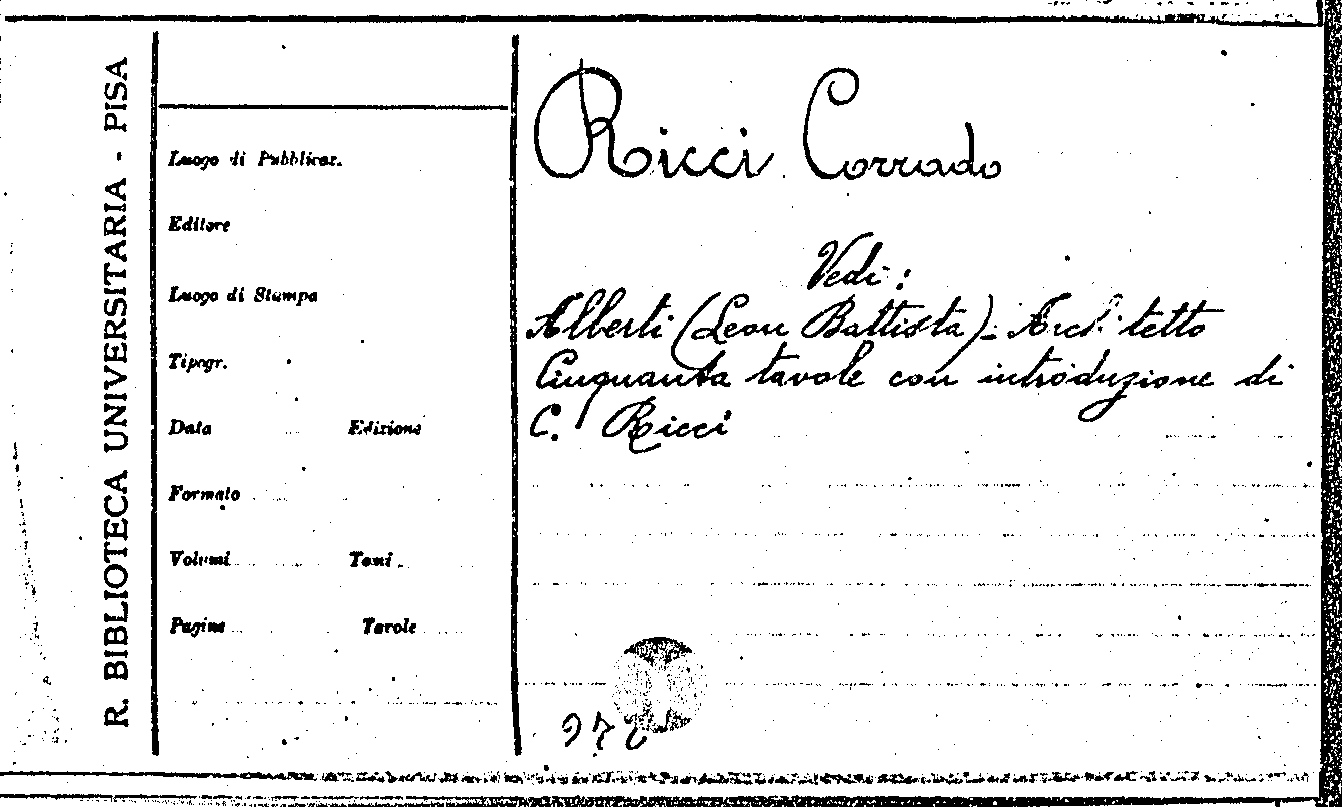 R. BIBLIOTECA UNIVERSITARIA - PISA
Luogo di Pubblicaz.
Editore
Luogo di Stampa
Tipogr.
Data Edizione
Formato
Volumi Tomi
Pagine Tavole
Ricci Corrado
Vedi:
Alberti (Leon Battista) - Architetto
Cinquanta tavole con introduzione di
C. Ricci